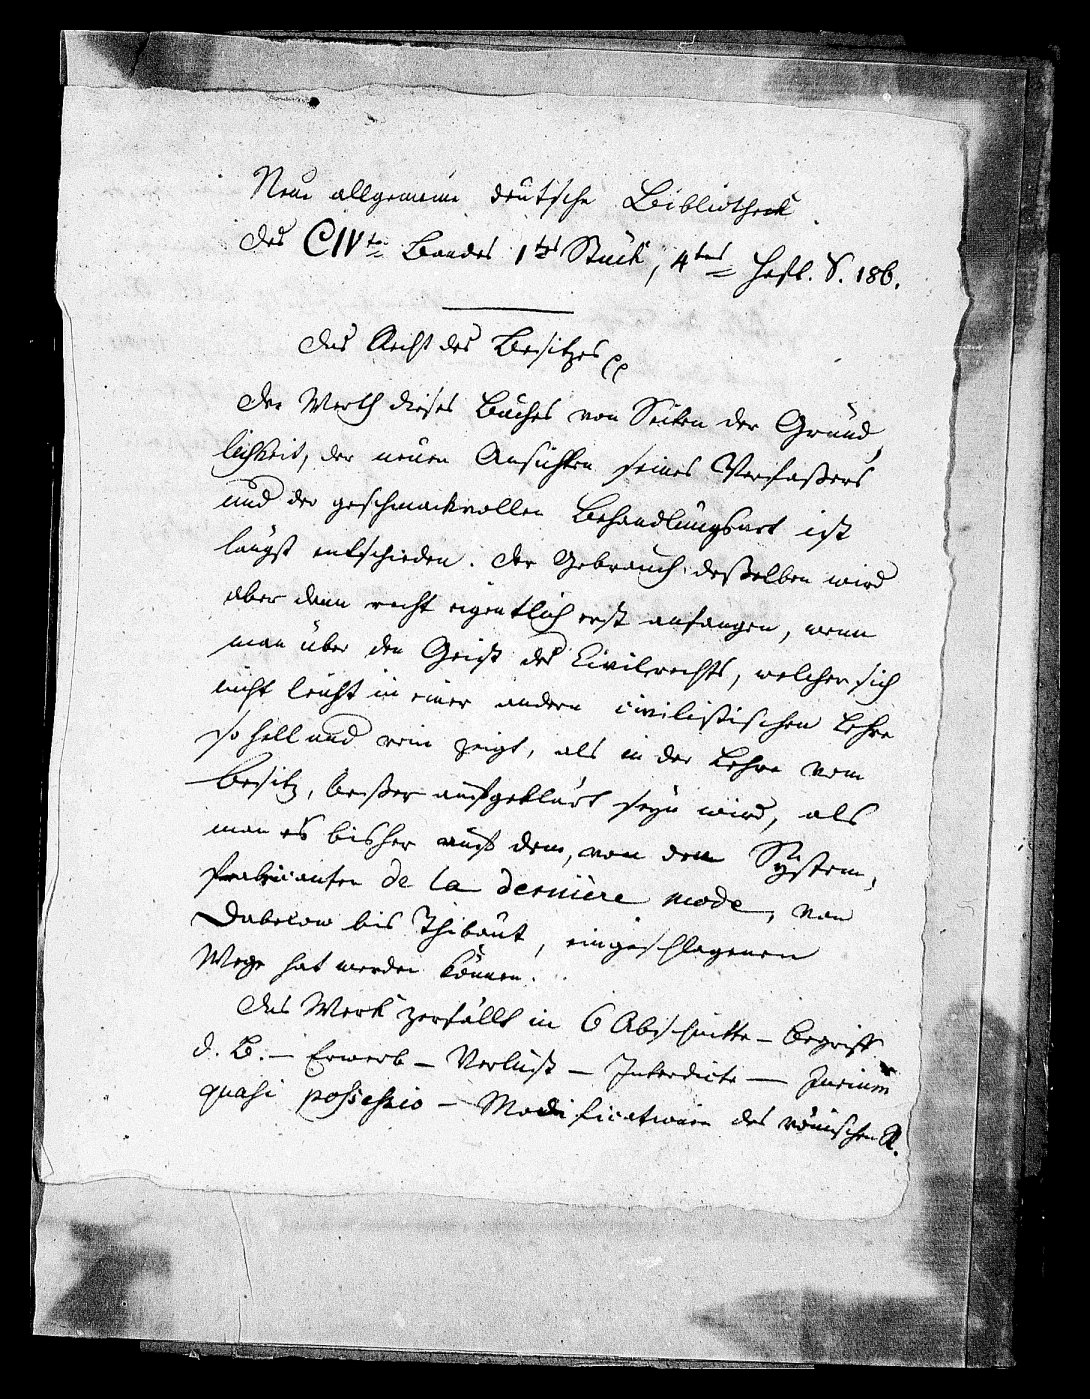 Neue allgemeine deutsche Bibliotheck
des CIVten Bandes 1tes Stück, 4tes Heft. S. 186.
Das Recht des Besitzes
Der Werth dieses Buches von Seiten der Gründ
lichkeit, der neuen Ansichten seines Verfaßers
und der geschmackvollen Behandlungsart ist
längst entschieden. Der Gebrauch deßelben wird
aber dann recht eigentlich erst anfangen, wenn
man über den Geist des Civilrechts, welcher sich
nicht leicht in einer andern civilistischen Lehre
so hell und rein zeigt, als in der Lehre vom
Besitz, beßer aufgeklärt seyn wird, als
man es bisher auf dem, von den System,
Fabricanten de la dernière mode, von
Dabelow bis Thibaut, eingeschlagenen
Wege hat werden können.
Das Werk zerfällt in 6 Abschnitte – Begriff
d. B. – Erwerb – Verlust – Interdicte – Jurium
quasi possessio – Modificationen des römischen R.